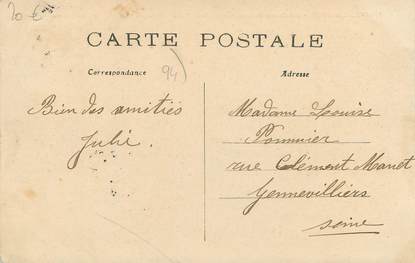 20 €
CARTE POSTALE
Correspondance
94
Adresse
Bien des amitiés
Julié.
Madame Louise
Pommier
rue Clément Manet
Gennevilliers
Seine